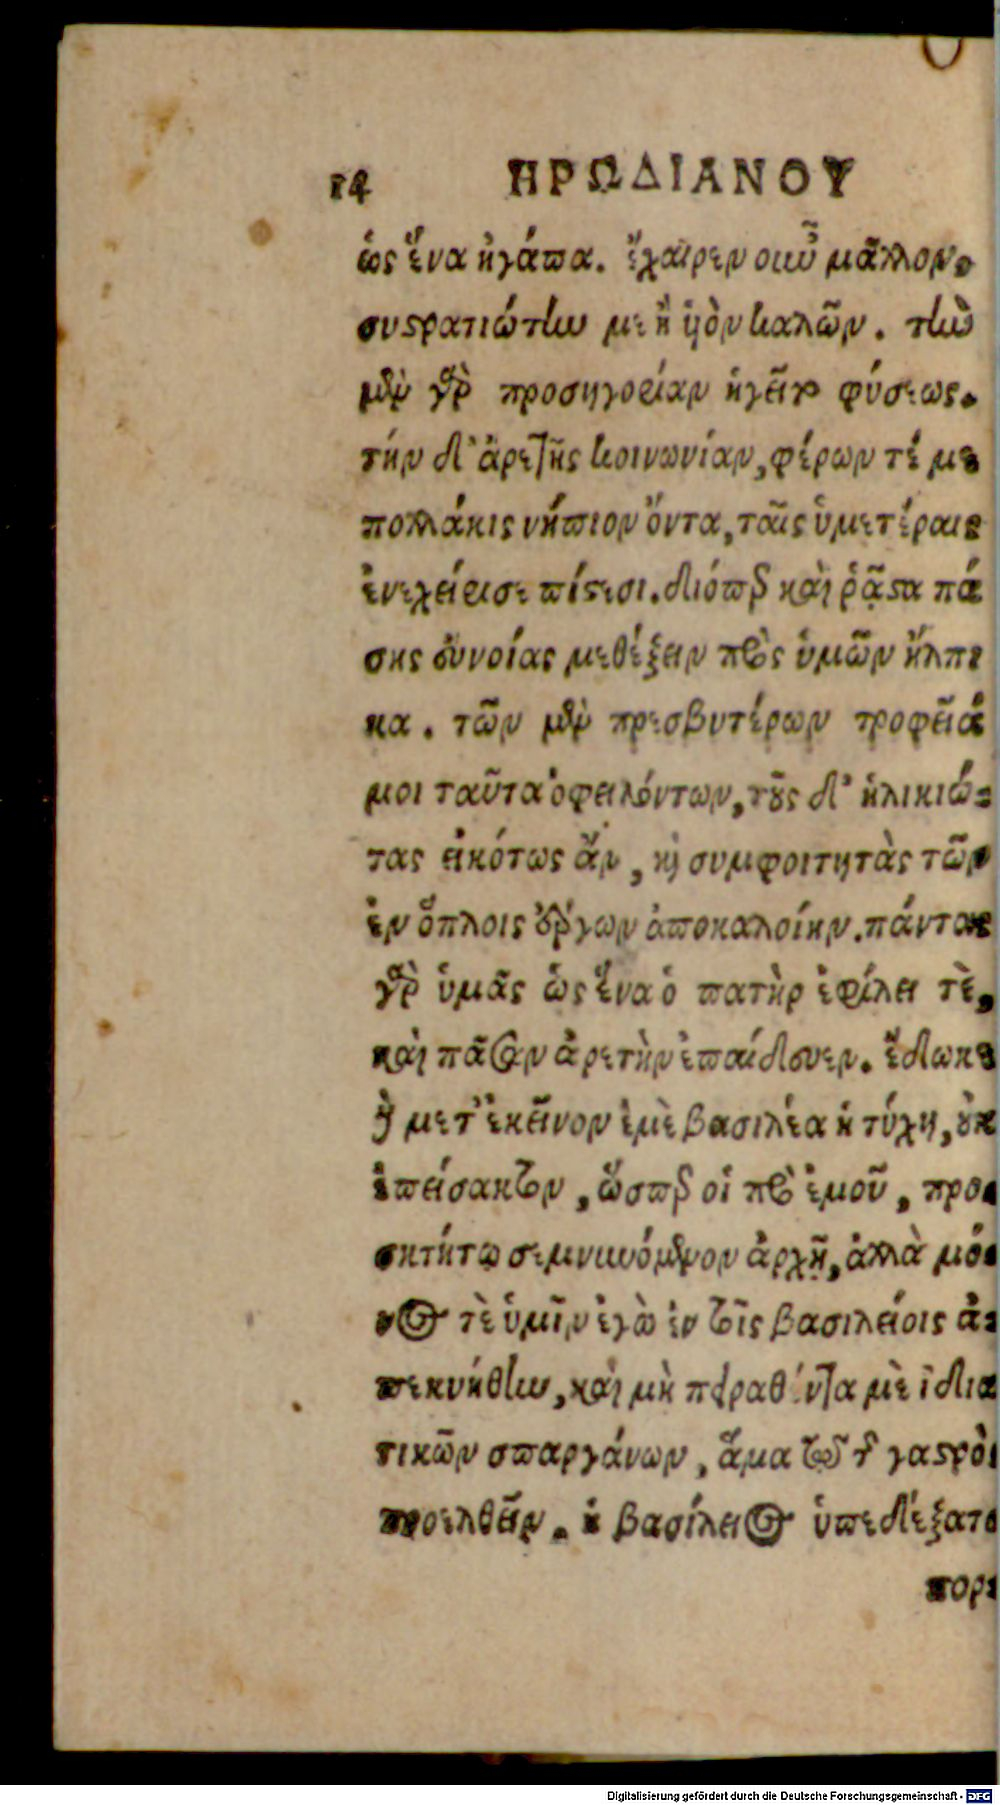 14 ΗΡΩΔΙΑΝΟΥ
ὡς ἕνα ἠγάπα. ἔχαιρεν οιωῦ μᾶλλον,
συστρατιώτην με ἢ υἱὸν καλῶν. τὴν
μὲν γὰρ προσηγορίαν ἡγεῖτο φύσεως.
τήν δ' ἀρετῆς κοινωνίαν, φέρων τέ με
πολλάκις νήπιον ὄντα, ταῖς ὑμετέραις
ἐνεχείρισε πίστεσι. διόπερ καὶ ῥᾷστα πά
σης εὐνοίας μεθέξειν πρὸς ὑμῶν ἤλπι
κα. τῶν μὲν πρεσβυτέρων τροφεῖά
μοι ταῦτα ὀφειλόντων, τοὺς δ' ἡλικιώ-
τας εἰκότως ἄν, καὶ συμφοιτητὰς τῶν
ἐν ὅπλοις ἔργων ἀποκαλοίην. πάντας
γὰρ ὑμᾶς ὡς ἕνα ὁ πατὴρ ἐφίλει τὲ,
καὶ πᾶσαν ἀρετὴν ἐπαίδευεν. ἔδωκε
δὲ μετ' ἐκεῖνον ἐμὲ βασιλέα ἡ τύχη, οὐκ
ἐπείσακτον, ὥσπερ οἱ πρὸ ἐμοῦ, προσ
κτήτῳ σεμνυνόμενον ἀρχῇ, ἀλλὰ μό-
νος τὲ ὑμῖν ἐγὼ ἐν τοῖς βασιλείοις ἀ-
πεκυήθην, καὶ μὴ πειραθέντα μὲ ἰδιω
τικῶν σπαργάνων, ἅμα τῷ τῆς γαστρὸς
προελθεῖν. ἡ βασίλειος ὑπεδέξατο
πορ-
Digitalisierung gefördert durch die Deutsche Forschungsgemeinschaft - DFG